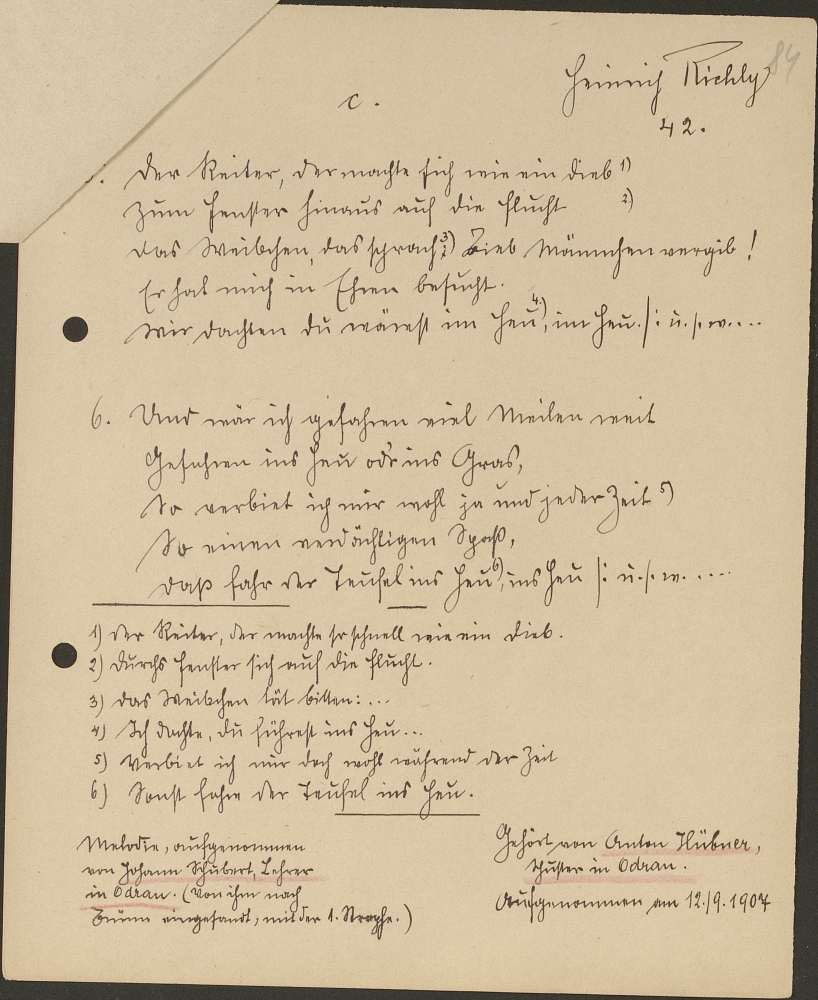 84
Heinrich Richly
c.
42.
Der Reiter, der machte sich wie ein Dieb 1)
Zum Fenster hinaus auf die Flucht 2)
Das Weibchen, das sprach 3) Lieb Männchen vergib!
Er hat mich in Ehren besucht.
Wir dachten du wärest im Heu 4), im Heu. /: u.s.w....
6. Und wär ich gefahren viel Meilen weit
Gefahren ins Heu odr ins Gras,
So verbiet ich mir wohl ja und jeder Zeit 5)
So einen verdächtigen Spaß,
Daß fahr der Teufel ins Heu 6), ins Heu /: u.s.w. ....
1) Der Reiter, der machte so schnell wie ein Dieb.
2) Durchs Fenster sich auf die Flucht.
3) Das Weibchen tät bitten: ...
4) Ich dachte, du führest ins Heu...
5) Verbiet ich mir doch wohl während der Zeit
6) Sonst fahre der Teufel ins Heu.
Melodie, aufgenommen
von Johann Schubert, Lehrer
in Odrau. (Von ihm nach
Brünn eingesandt, mit der 1. Strophe.)
Gehört von Anton Hübner,
Schuster in Odrau.
Aufgenommen am 12./9. 1907